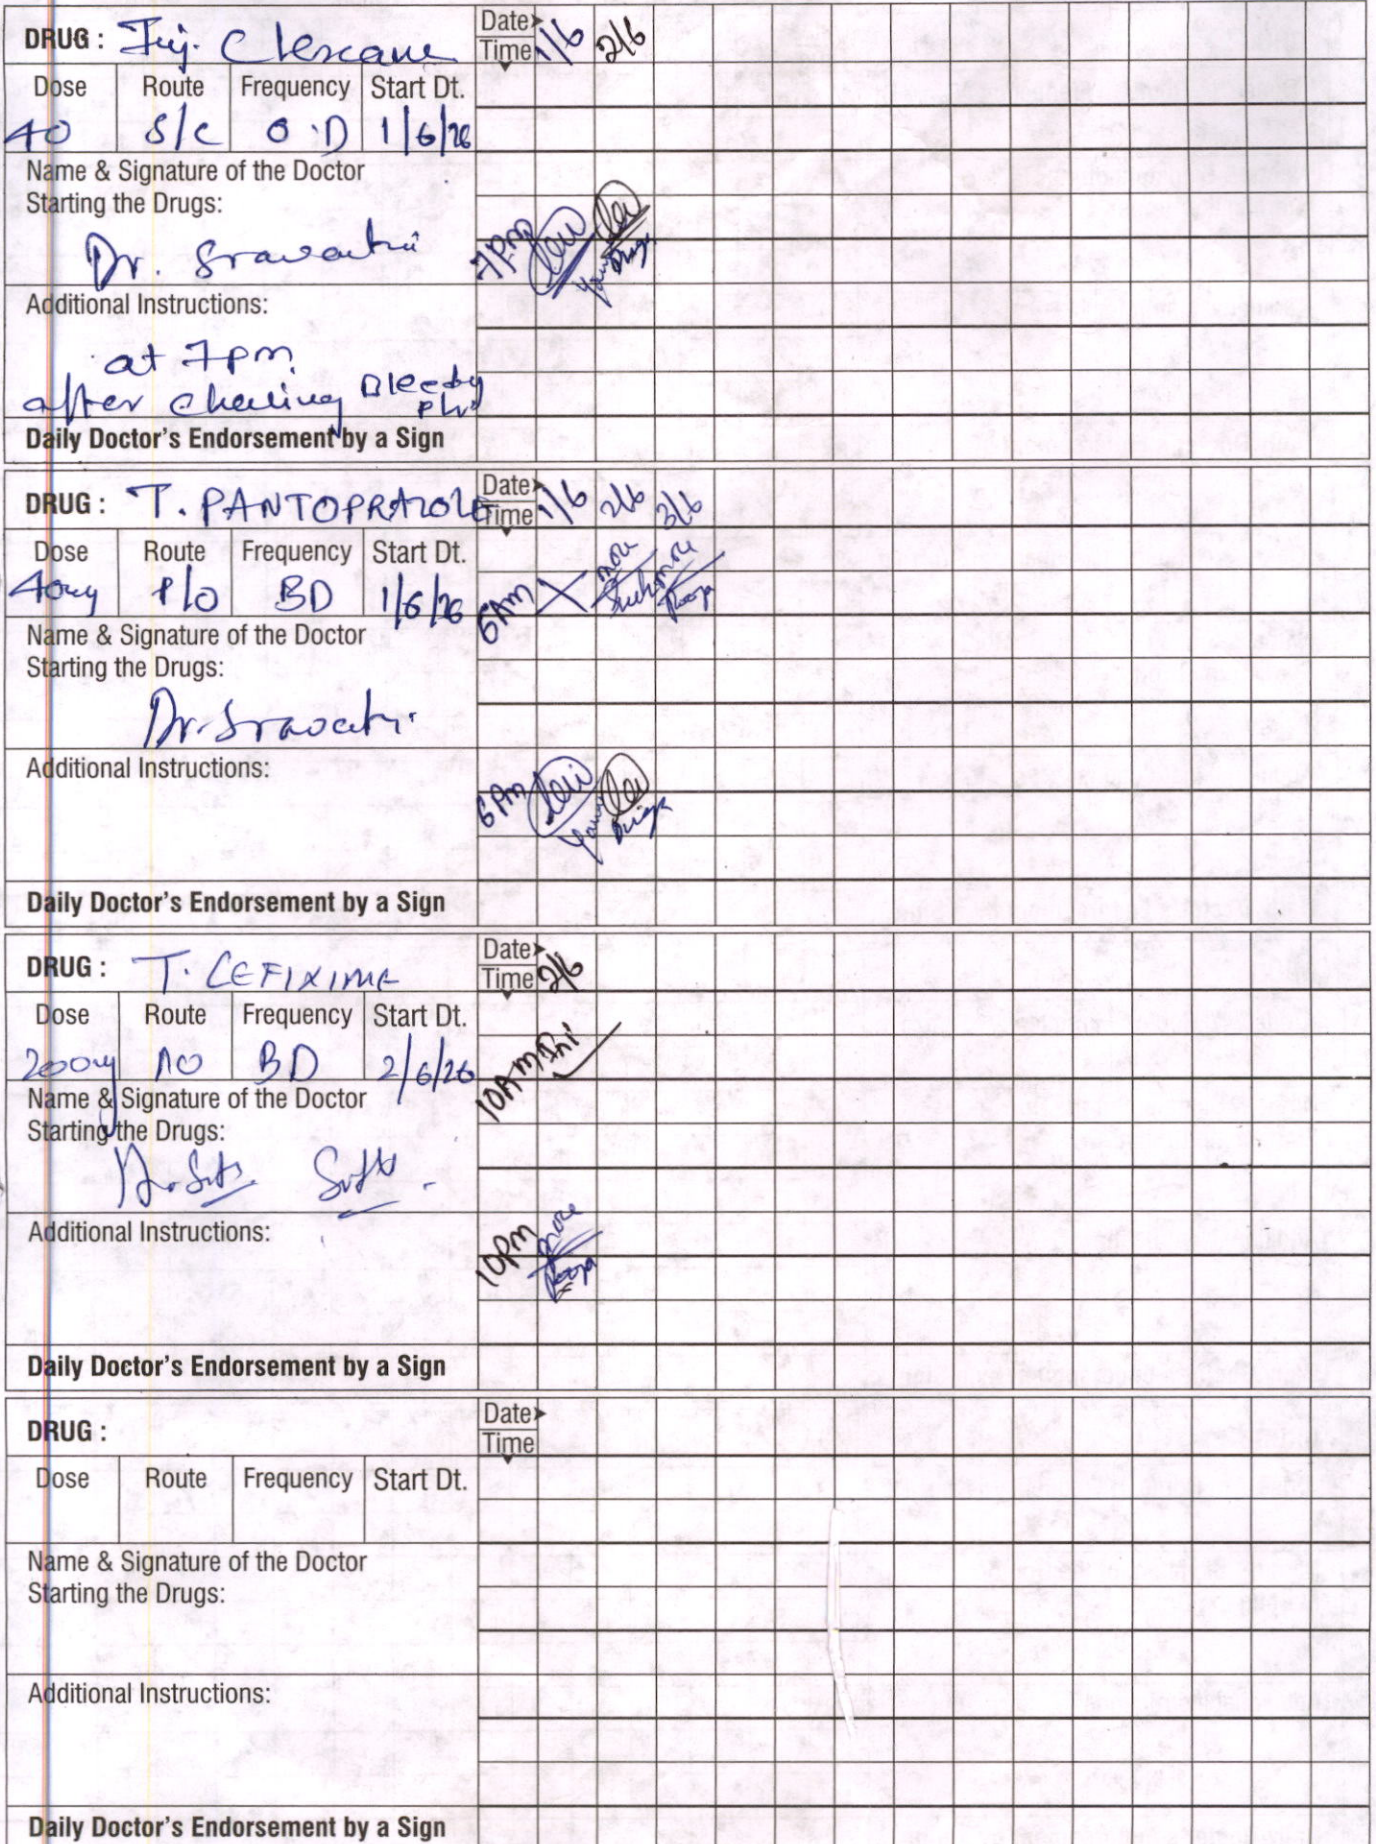 DRUG : Inj. Clexane Date Time 1/6 2/6
Dose Route Frequency Start Dt.
40 S/C O.D 1/6/26
Name & Signature of the Doctor
Starting the Drugs:
Dr. Sravanthi
7pm
Additional Instructions:
at 7pm
after checking Bleeding
Daily Doctor's Endorsement by a Sign
DRUG : T. PANTOPRAZOLE Date Time 1/6 2/6 3/6
Dose Route Frequency Start Dt.
40mg P/O BD 1/6/26 6Am X
Name & Signature of the Doctor
Starting the Drugs:
Dr. Sravanthi
Additional Instructions:
6pm
Daily Doctor's Endorsement by a Sign
DRUG : T. CEFIXIME Date Time 2/6
Dose Route Frequency Start Dt.
200mg PO BD 2/6/26 10Am
Name & Signature of the Doctor
Starting the Drugs:
Additional Instructions:
10pm
Daily Doctor's Endorsement by a Sign
DRUG : Date Time
Dose Route Frequency Start Dt.
Name & Signature of the Doctor
Starting the Drugs:
Additional Instructions:
Daily Doctor's Endorsement by a Sign